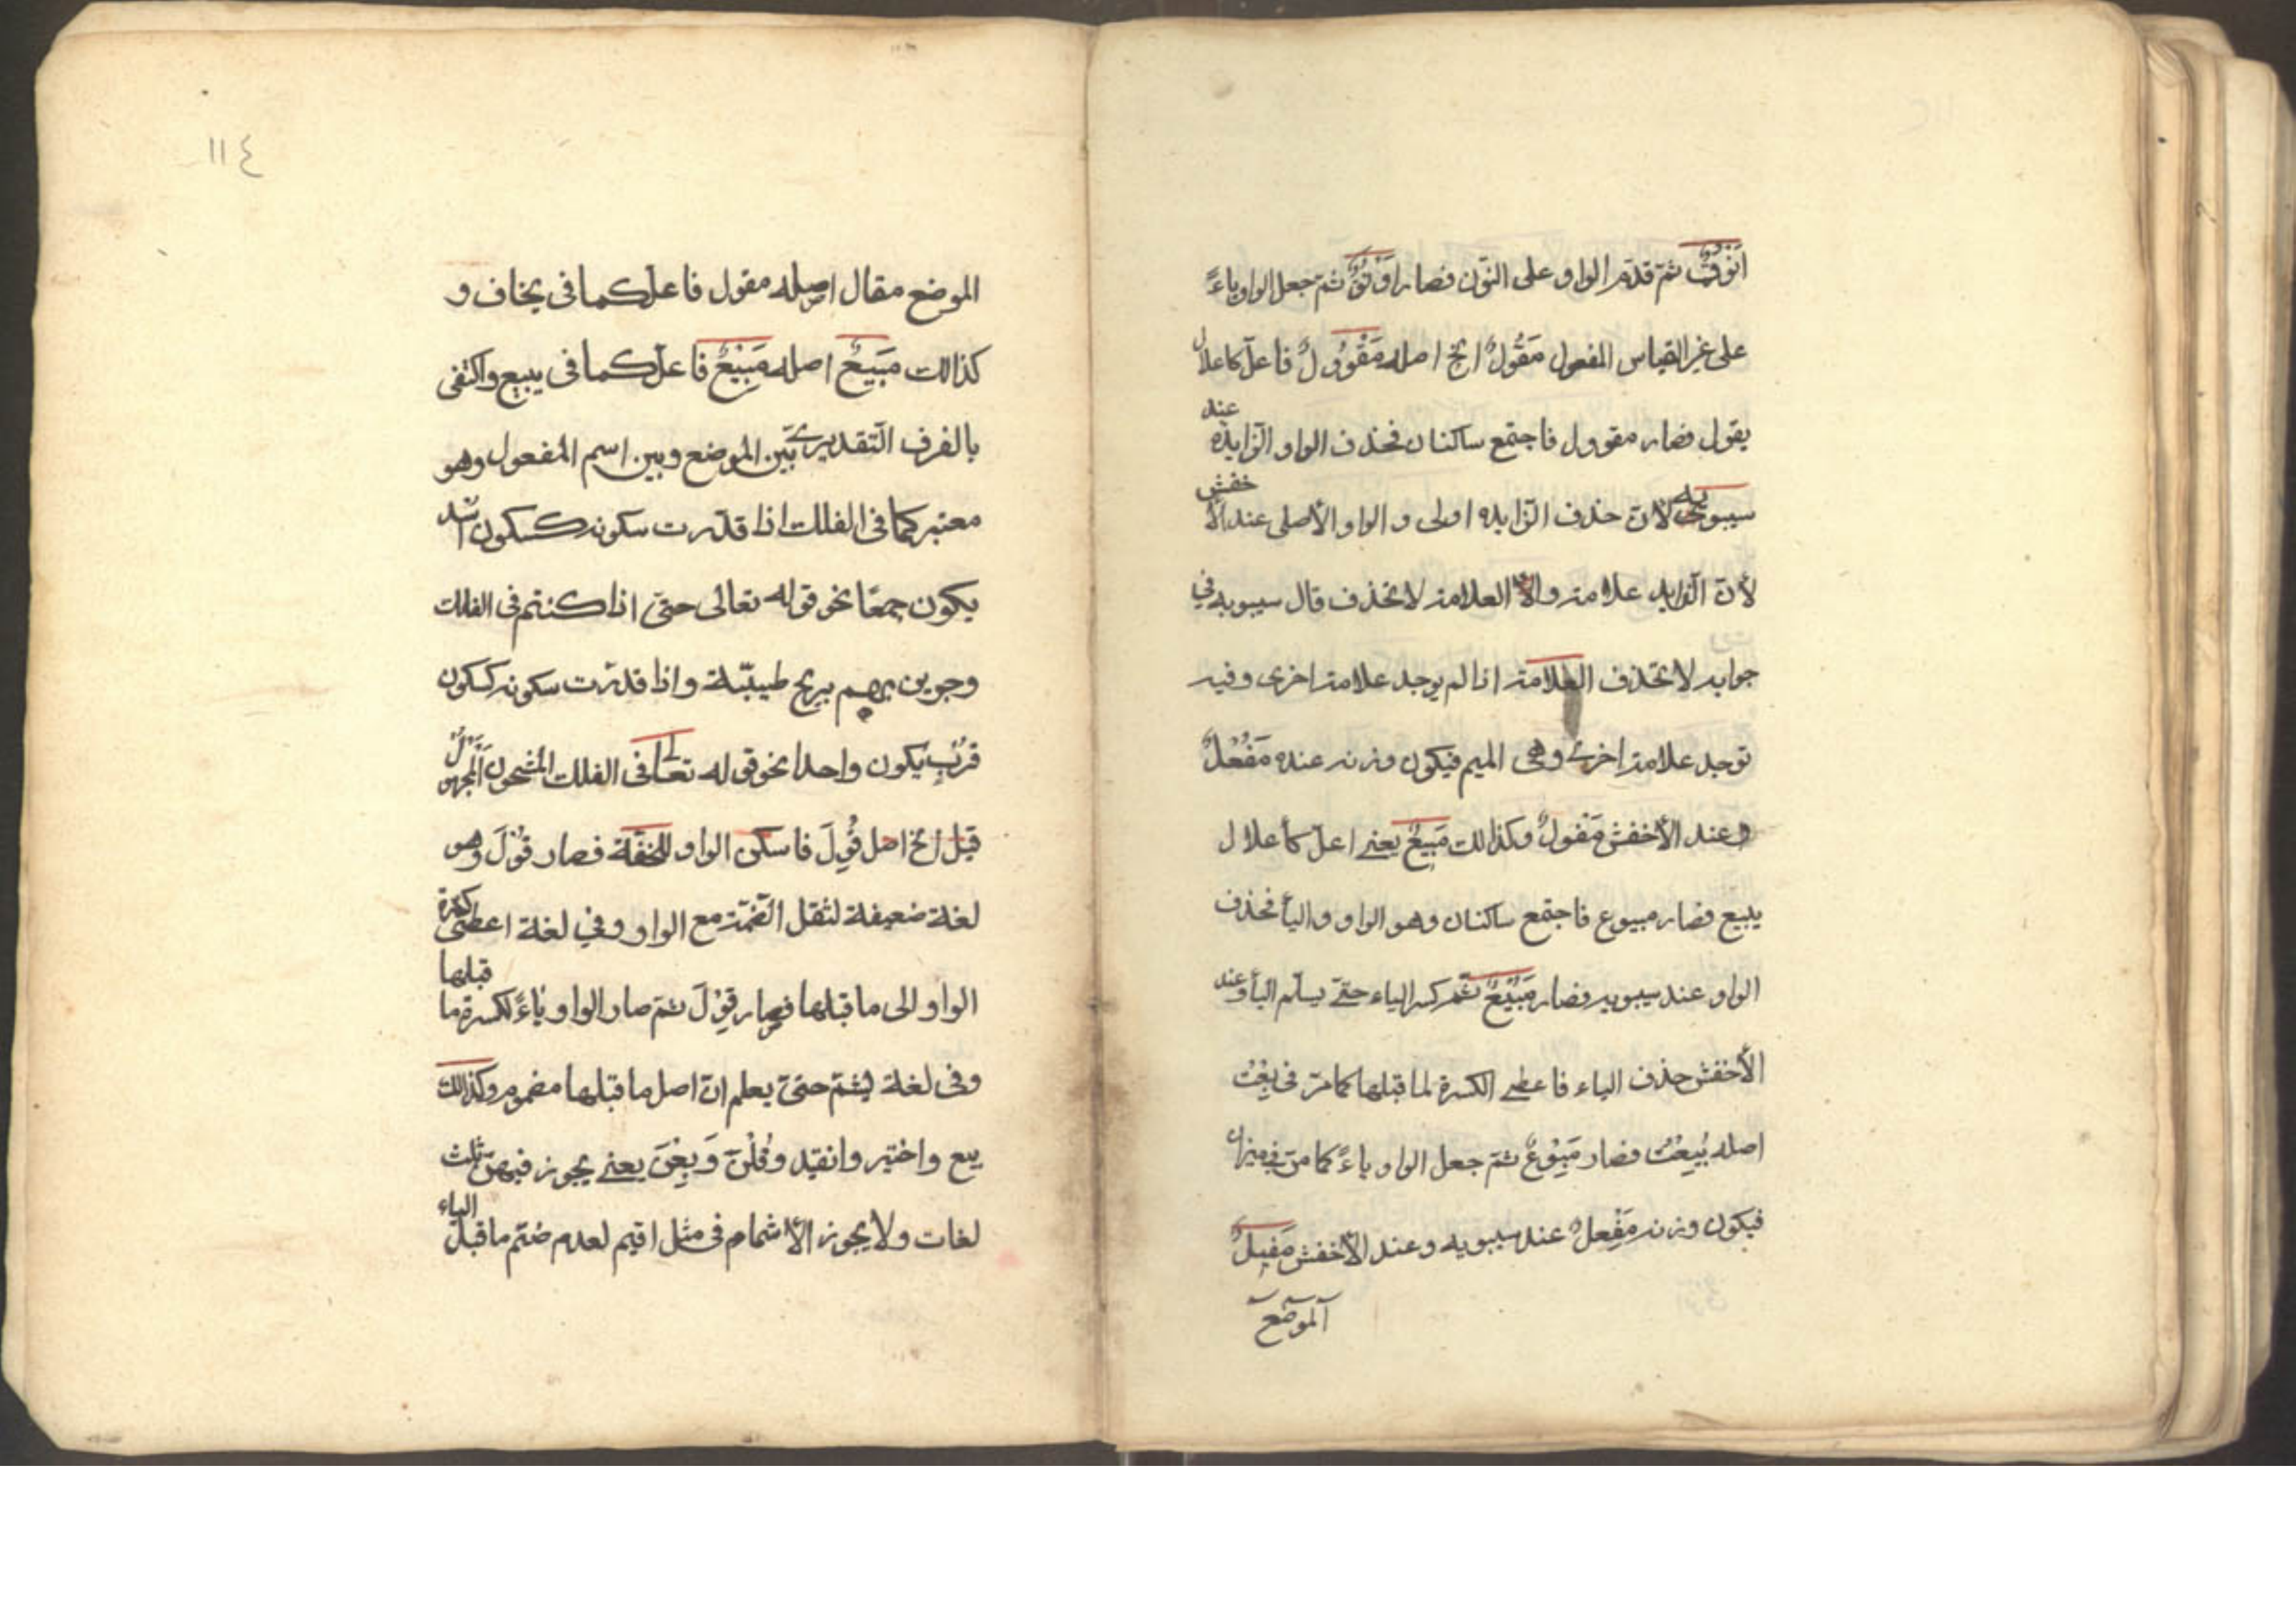 اَنْوُقٌ ثمّ قدّم الواو على النّون فصار اَوْنُقٌ ثمّ جعل الواو ياءً
على غير القياس المفعول مَقُولٌ الخ اصله مَقْوُولٌ فاعلّ كاعلال
يقول فصار مقوول فاجتمع ساكنان فحذف الواو الزّايده عند
سيبويه لانّ حذف الزّايده اولى و الواو الأصلى عند الأخفش
لأنّ الزّايد علامة و العلامة لا تحذف قال سيبويه في
جوابه لا تحذف العلامة اذا لم يوجد علامة اخرى وفيه
توجد علامة اخرى وهى الميم فيكون وزنه عنده مَفُعْلٌ
و عند الأخفش مَفُولٌ وكذالك مَبِيعٌ يعنى اعلّ كأعلال
يبيع فصار مبيوع فاجتمع ساكنان وهو الواو والياء فحذف
الواو عند سيبويه فصار مَبُيْعٌ ثمّ كسر الباء حتّى يسلّم الياء وعند
الأخفش حذف الياء فاعطى الكسرة لما قبلها كما مرّ فى بِعْتُ
اصله بُيِعْتُ فصار مَبِوْعٌ ثمّ جعل الواو ياءً كما مرّ فى ميزان
فيكون وزنه مَفِعْلٌ عند سيبويه وعند الأخفش مَفِيلٌ
آلموضع
١١٤
الموضع مقال اصله مقول فاعلّ كما فى يخاف و
كذالك مَبِيعٌ اصله مَبْيِعٌ فاعلّ كما فى يبيع واكتفى
بالفرق التّقديرى بين الموضع وبين اسم المفعول وهو
معتبر كما فى الفلك اذا قدّرت سكونه كسكون اسد
يكون جمعًا نحو قوله تعالى حتّى اذا كنتم فى الفلك
وجرين بهم بريح طيّبة واذا قدّرت سكونه كسكون
قُرْبٍ يكون واحدا نحو قوله تعالى فى الفلك المشحون اَلْمجهولُ
قيل الخ اصل قُوِلَ فاسكن الواو للخفّة فصار قُوْلَ وهو
لغة ضعيفة لثقل الضّمّة مع الواو وفى لغة اعطى كسرة
الواو الى ما قبلها فصار قِوْلَ ثمّ صار الواو ياءً لكسرة ما قبلها
وفى لغة يشمّ حتىّ يعلم انّ اصل ما قبلها مضموم وكذالك
بيع واختير وانقيد وقُلْنَ وَبِعْنَ يعنى يجوز فيهنّ ثلث
لغات ولا يجوز الأشمام فى مثل اقيم لعدم ضمّ ما قبل الياء